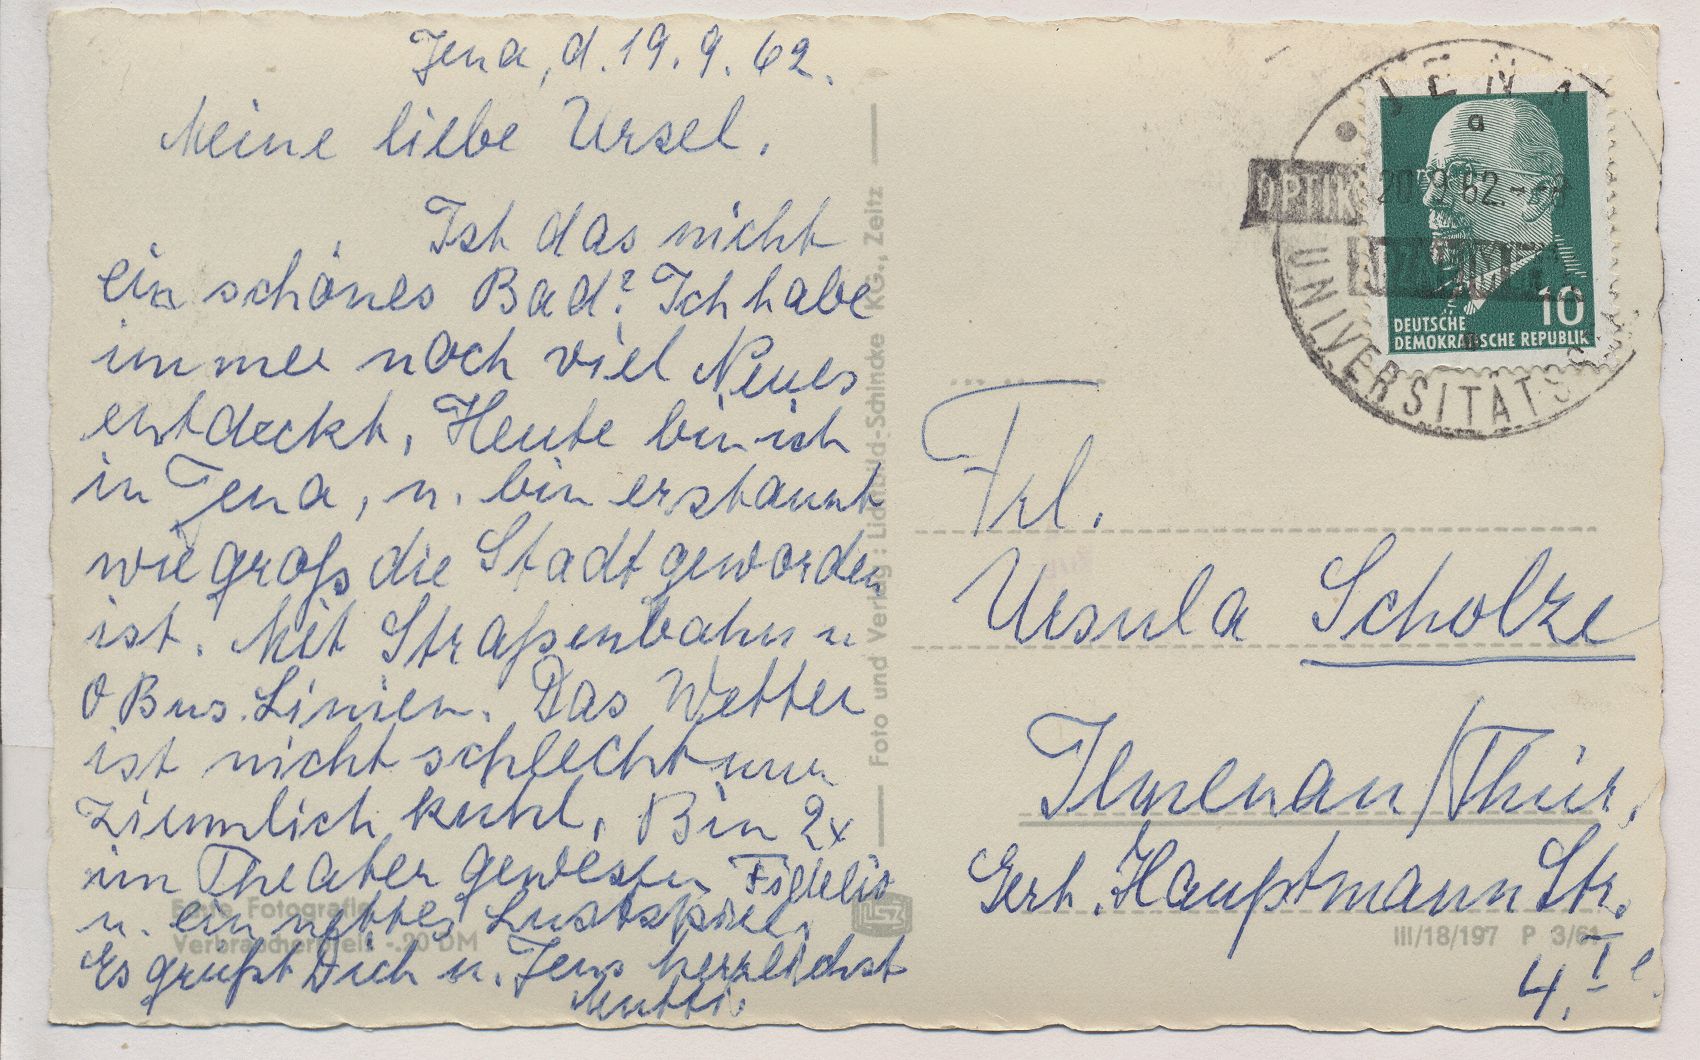 Jena, d. 19. 9. 62.
Meine liebe Ursel.
Ist das nicht
ein schönes Bad? Ich habe
immer noch viel Neues
entdeckt. Heute bin ich
in Jena, u. bin erstaunt
wie groß die Stadt geworden
ist. Mit Straßenbahn u
O Bus. Linien. Das Wetter
ist nicht schlecht nur
ziemlich kühl. Bin 2x
im Theater gewesen Fidelio
u. ein nettes Lustspiel,
Es grüßt Dich u. Jens herzlichst
Mutti.
Foto und Verlag: Lichtbild-Schincke KG., Zeitz
Echte Fotografie
Verbraucherpreis -.20 DM
JENA 1
a
OPTIK
20.9.62.-8
UNIVERSITÄTSS
10
DEUTSCHE
DEMOKRATISCHE REPUBLIK
Frl.
Ursula Scholze
Ilmenau/Thür.
Gerh. Hauptmann Str.
III/18/197 P 3/61
4. I